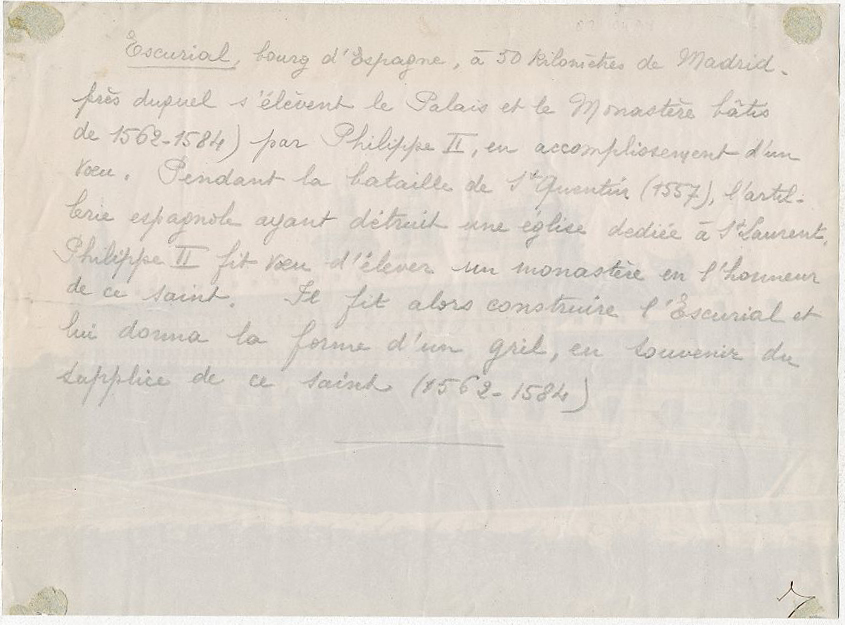 Escurial, bourg d'Espagne, à 50 kilomètres de Madrid.
près duquel s'élèvent le Palais et le Monastère bâtis
de 1562-1584) par Philippe II, en accomplissement d'un
vœu. Pendant la bataille de St Quentin (1557), l'artil-
lerie espagnole ayant détruit une église dediée à St Laurent,
Philippe II fit vœu d'élever un monastère en l'honneur
de ce saint. Il fit alors construire l'Escurial et
lui donna la forme d'un gril, en souvenir du
supplice de ce saint (1562-1584)